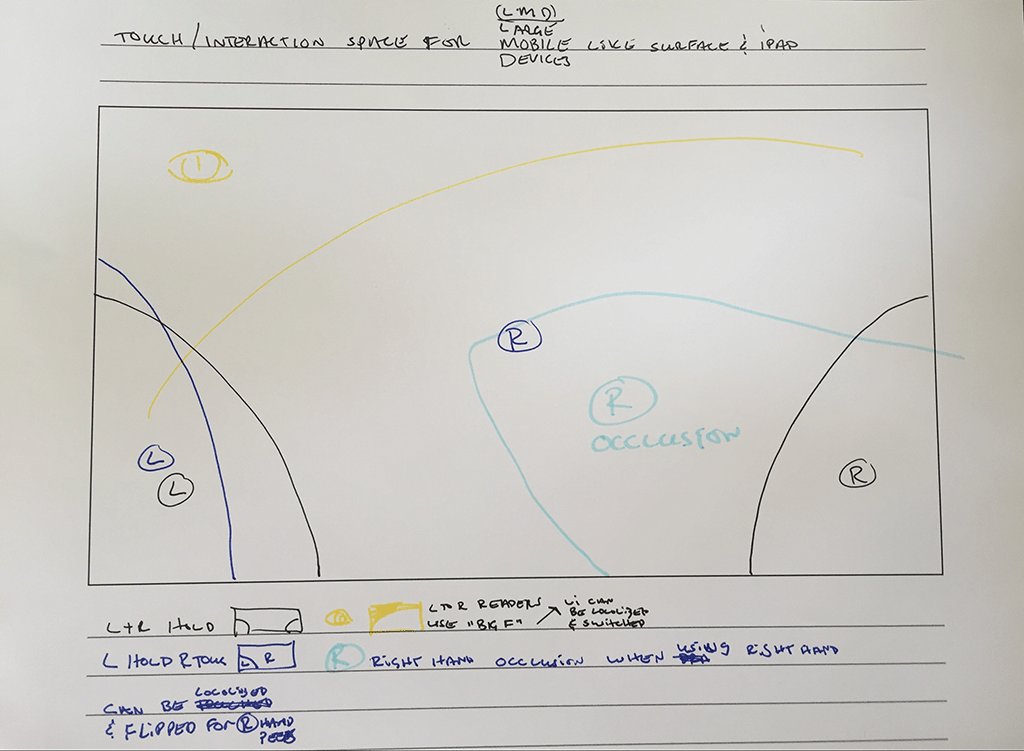 (LMD)
LARGE
TOUCH/INTERACTION SPACE FOR MOBILE LIKE SURFACE & IPAD
DEVICES
L
L
R
R
OCCLUSION
R
L+R HOLD
L TO R READERS
USE "BIG F"
UI CAN
BE LOCALIZED
& SWITCHED
L HOLD R TOUCH
L R
R RIGHT HAND OCCLUSION WHEN USING RIGHT HAND
LOCALIZED
CAN BE
& FLIPPED FOR R HAND
PEEPS